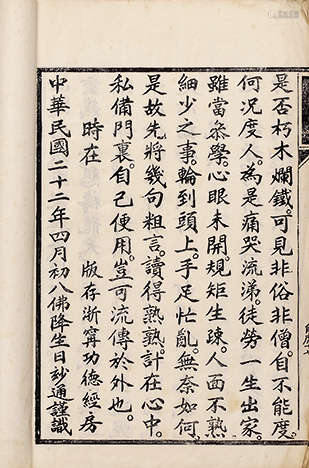 是否朽木爛鐵。可見非俗非僧。自不能度。
何況度人。為是痛哭流涕。徒勞一生出家。
雖當叅學。心眼未開。規矩生疎。人面不熟。
細少之事。輪到頭上。手足忙亂。無奈如何。
是故先將幾句粗言。讀得熟熟。計在心中。
私備門裏。自己便用。豈可流傳於外也。
時在　版存浙甯功德經房
中華民國二十二年四月初八佛降生日妙通謹識